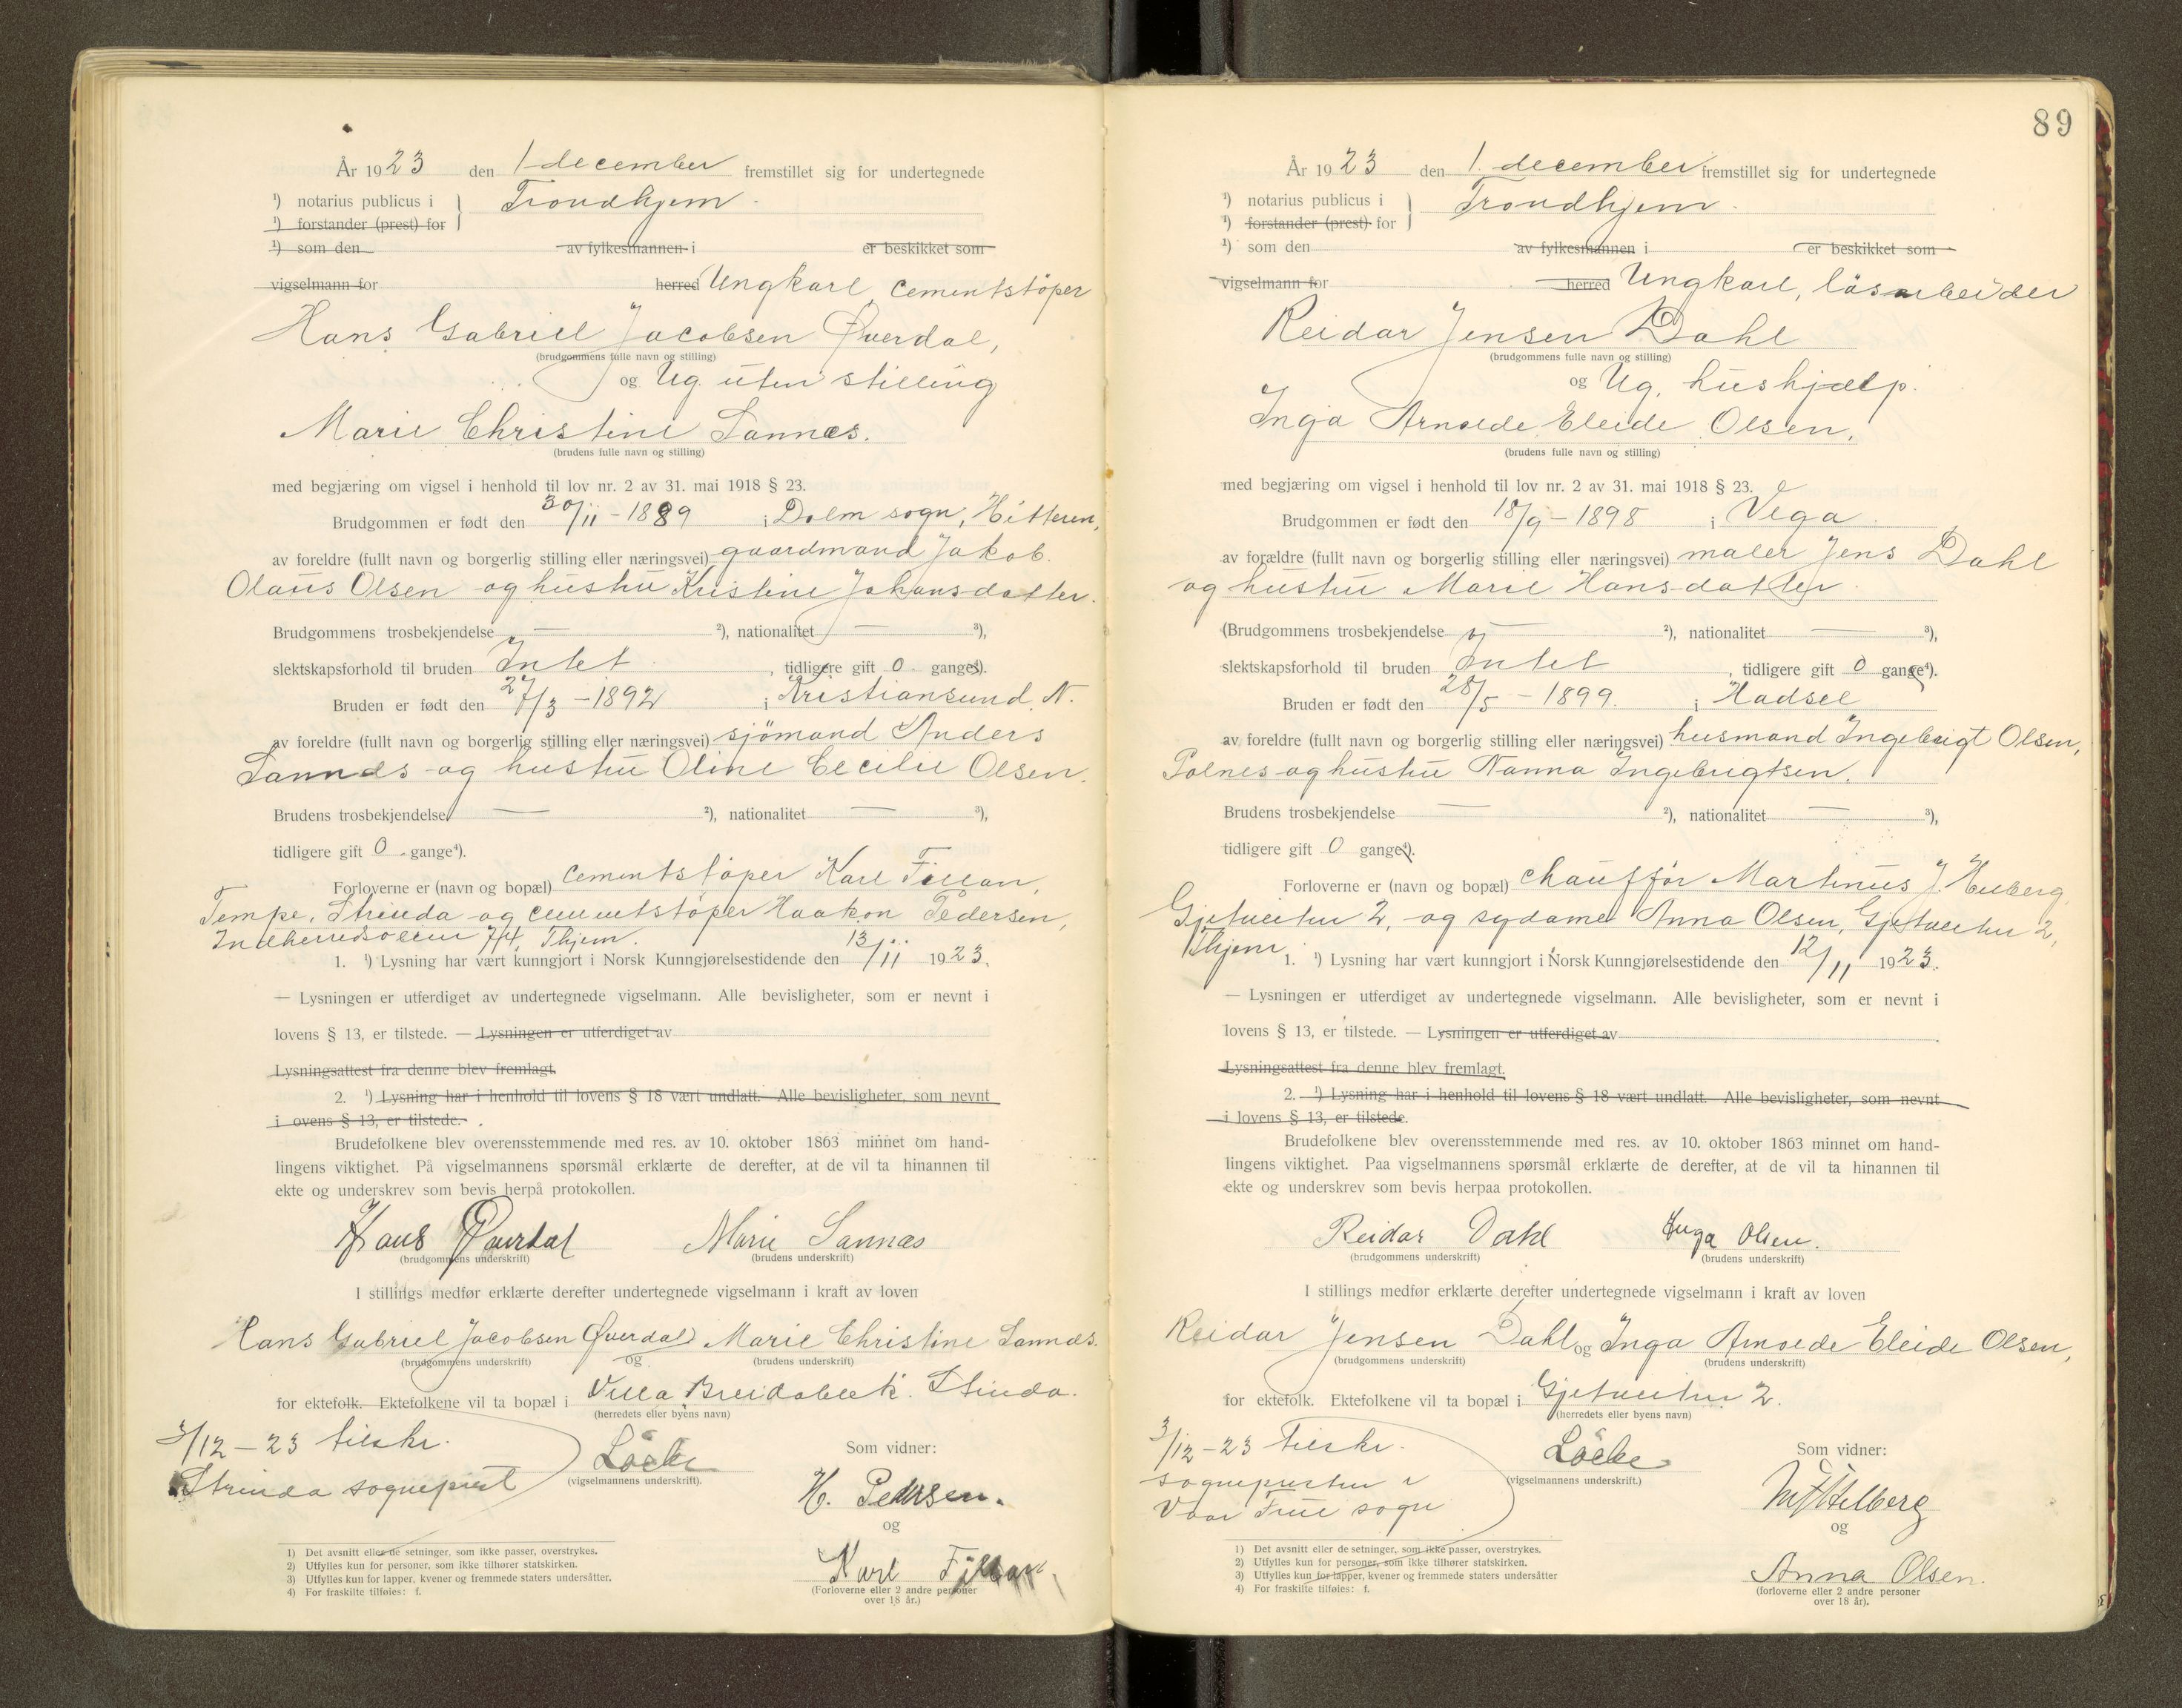 År 1923 den 1 december fremstillet sig for undertegnede
¹) notarius publicus i } Trondhjem.
¹) forstander (prest) for
¹) som den av fylkesmannen i er beskikket som
vigselmann for herred Ungkarl, cementstöper
Hans Gabriel Jacobsen Øverdal,
(brudgommens fulle navn og stilling)
og Ug. uten stilling
Marie Christine Sannæs.
(brudens fulle navn og stilling)
med begjæring om vigsel i henhold til lov nr. 2 av 31. mai 1918 § 23.
Brudgommen er født den 30/11 - 1889 i Dolm sogn, Hitteren,
av foreldre (fullt navn og borgerlig stilling eller næringsvei) gaardmand Jakob
Olaus Olsen og hustru Kristine Johansdatter.
Brudgommens trosbekjendelse — ²), nationalitet — ³),
slektskapsforhold til bruden Intet, tidligere gift 0 gange⁴).
Bruden er født den 27/3 - 1892 i Kristiansund N.
av foreldre (fullt navn og borgerlig stilling eller næringsvei) sjömand Anders
Sannæs og hustru Oline Cecilie Olsen.
Brudens trosbekjendelse — ²), nationalitet — ³),
tidligere gift 0 gange⁴).
Forloverne er (navn og bopæl) cementstöper Karl Fillan,
Tempe, Strinda og cementstöper Haakon Pedersen,
Indherredsveien 74, Thjem.
1. ¹) Lysning har vært kunngjort i Norsk Kunngjørelsestidende den 13/11 1923.
— Lysningen er utferdiget av undertegnede vigselmann. Alle bevisligheter, som er nevnt i
lovens § 13, er tilstede. — Lysningen er utferdiget av
Lysningsattest fra denne blev fremlagt.
2. ¹) Lysning har i henhold til lovens § 18 vært undlatt. Alle bevisligheter, som nevnt
i ovens § 13, er tilstede.
Brudefolkene blev overensstemmende med res. av 10. oktober 1863 minnet om hand-
lingens viktighet. På vigselmannens spørsmål erklærte de derefter, at de vil ta hinannen til
ekte og underskrev som bevis herpå protokollen.
Hans Øverdal Marie Sannæs
(brudgommens underskrift) (brudens underskrift)
I stillings medfør erklærte derefter undertegnede vigselmann i kraft av loven
Hans Gabriel Jacobsen Øverdal og Marie Christine Sannæs.
(brudgommens underskrift) (brudens underskrift)
for ektefolk. Ektefolkene vil ta bopæl i Villa Breidablik. Strinda.
(herredets eller byens navn)
3/12 - 23 tilskr.
Strinda sogneprest
Löcke
(vigselmannens underskrift).
Som vidner:
H. Pedersen.
og
Karl Fillan
(Forloverne eller 2 andre personer
over 18 år.)
1) Det avsnitt eller de setninger, som ikke passer, overstrykes.
2) Utfylles kun for personer, som ikke tilhører statskirken.
3) Utfylles kun for lapper, kvener og fremmede staters undersåtter.
4) For fraskilte tilføies: f.
89
År 1923 den 1 december fremstillet sig for undertegnede
¹) notarius publicus i } Trondhjem.
¹) forstander (prest) for
¹) som den av fylkesmannen i er beskikket som
vigselmann for herred Ungkarl, lösarbeider
Reidar Jensen Dahl
(brudgommens fulle navn og stilling)
og Ug. hushjælp.
Inga Arnolde Eleide Olsen,
(brudens fulle navn og stilling)
med begjæring om vigsel i henhold til lov nr. 2 av 31. mai 1918 § 23.
Brudgommen er født den 18/9 - 1898 i Vega.
av forældre (fullt navn og borgerlig stilling eller næringsvei) maler Jens Dahl
og hustru Marie Hansdatter.
(Brudgommens trosbekjendelse — ²), nationalitet — ³),
slektskapsforhold til bruden Intet, tidligere gift 0 gange⁴).
Bruden er født den 28/5 - 1899. i Hadsel
av foreldre (fullt navn og borgerlig stilling eller næringsvei) husmand Ingebrigt Olsen,
og hustru Nanna Ingebrigtsen.
Brudens trosbekjendelse — ²), nationalitet — ³),
tidligere gift 0 gange⁴).
Forloverne er (navn og bopæl) chauffør Martinus J.
Gjetveitu 2, og sydame Anna Olsen, Gjetveitu 2,
Thjem.
1. ¹) Lysning har vært kunngjort i Norsk Kunngjørelsestidende den 12/11 1923.
— Lysningen er utferdiget av undertegnede vigselmann. Alle bevisligheter, som er nevnt i
lovens § 13, er tilstede. — Lysningen er utferdiget av
Lysningsattest fra denne blev fremlagt.
2. ¹) Lysning har i henhold til lovens § 18 vært undlatt. Alle bevisligheter, som nevnt
i lovens § 13, er tilstede.
Brudefolkene blev overensstemmende med res. av 10. oktober 1863 minnet om hand-
lingens viktighet. Paa vigselmannens spørsmål erklærte de derefter, at de vil ta hinannen til
ekte og underskrev som bevis herpaa protokollen.
Reidar Dahl Inga Olsen.
(brudgommens underskrift) (brudens underskrift)
I stillings medfør erklærte derefter undertegnede vigselmann i kraft av loven
Reidar Jensen Dahl og Inga Arnolde Eleide Olsen,
(brudgommens underskrift) (brudens underskrift)
for ektefolk. Ektefolkene vil ta bopæl i Gjetveitu 2.
(herredets eller byens navn)
3/12 - 23 tilskr.
sognepresten i
Vaar Frue sogn
Löcke
(vigselmannens underskrift.)
Som vidner:
og
Anna Olsen.
(forloverne eller 2 andre personer
over 18 år).
1) Det avsnitt eller de setninger, som ikke passer, overstrykes.
2) Utfylles kun for personer, som ikke tilhører statskirken.
3) Utfylles kun for lapper, kvener og fremmede staters undersåtter
4) For fraskilte tilføies: f.